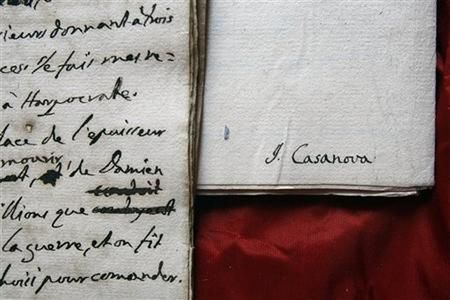 rieur donnant à trois
ces: Je fais mes re=
à Harpocrate.
lace de l'epaisseur
mourir
et, et de Damien
illions que
la guerre, et on fit
choisi pour comander.
J. Casanova